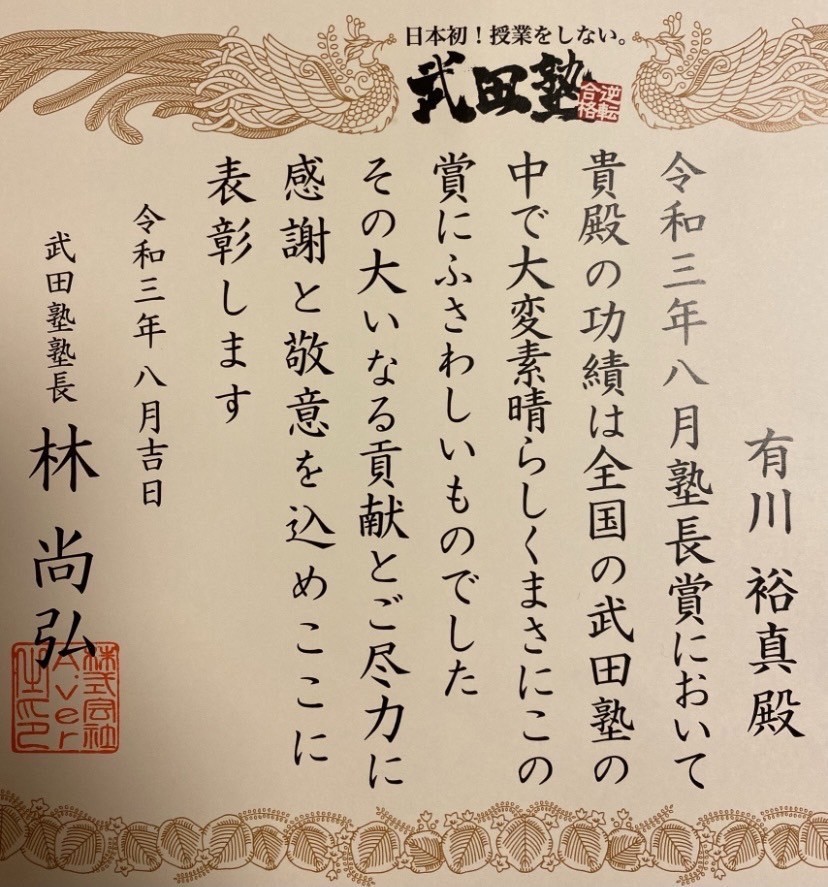 日本初！授業をしない。
武田塾
逆転
合格
有川 裕真 殿
令和三年八月塾長賞において
貴殿の功績は全国の武田塾の
中で大変素晴らしくまさにこの
賞にふさわしいものでした
その大いなる貢献とご尽力に
感謝と敬意を込めここに
表彰します
令和三年八月吉日
武田塾塾長 林 尚弘
株式会社
A.ver
之印